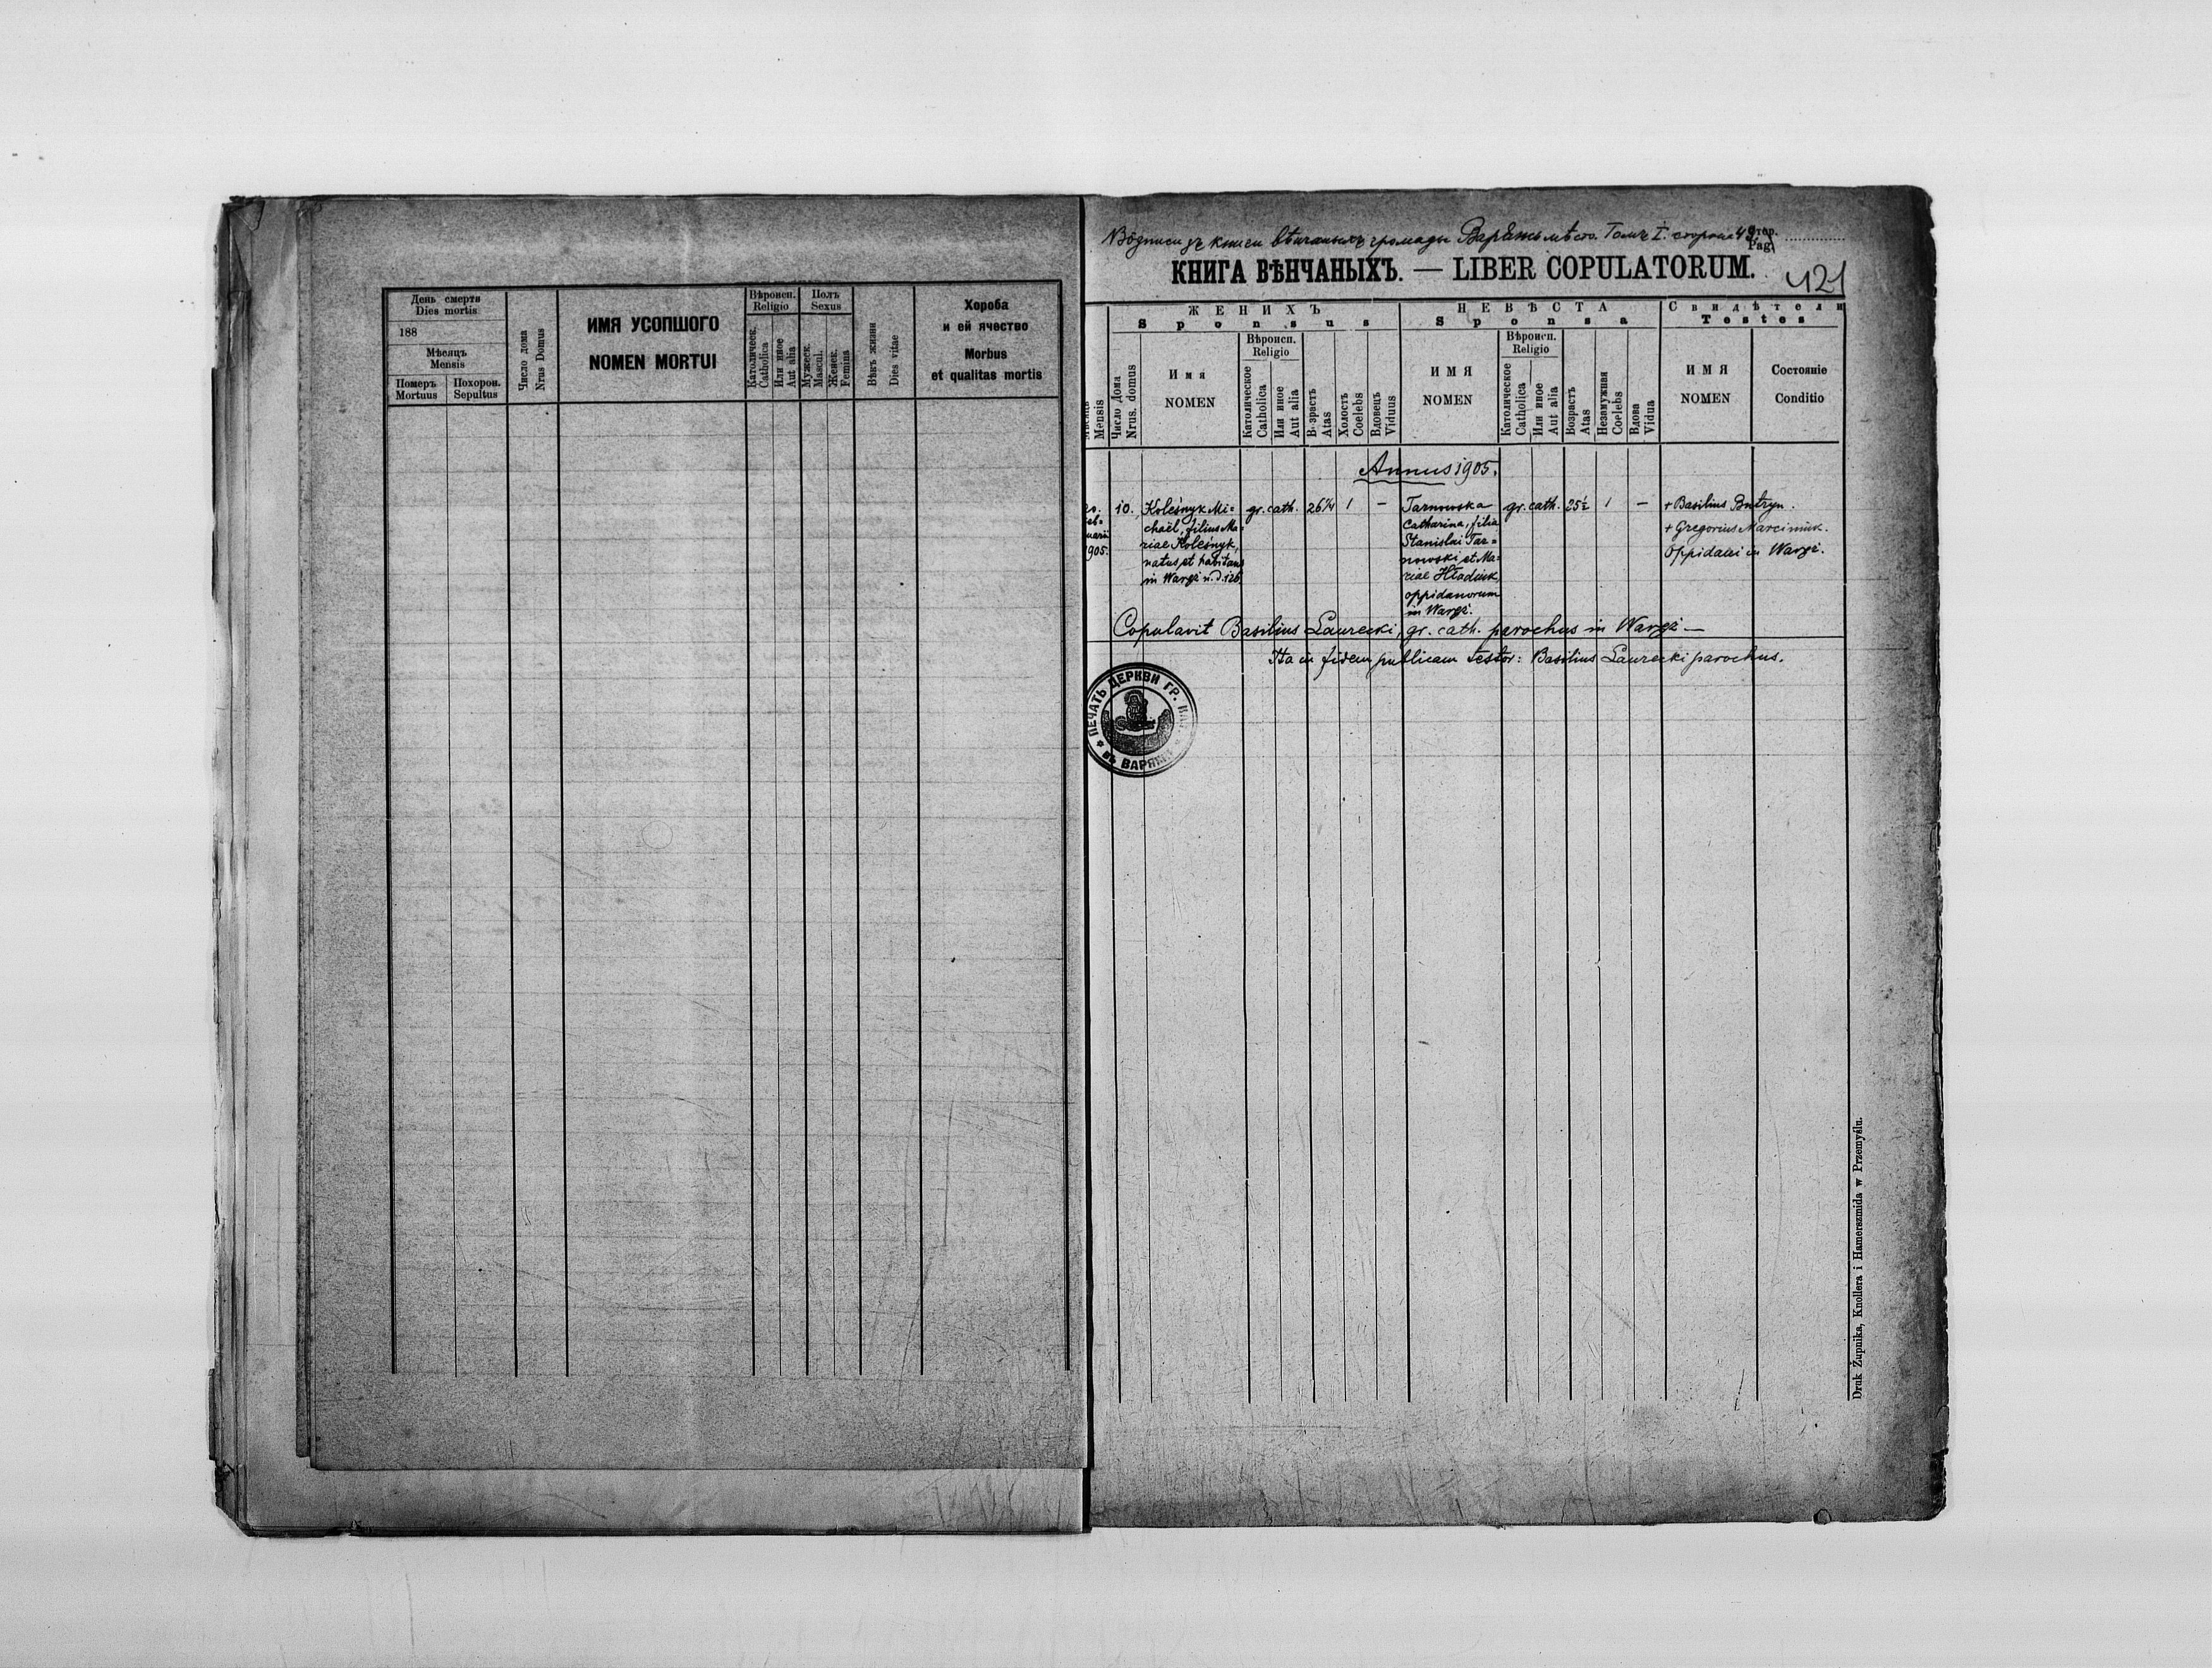 День смерти
Dies mortis
188
Мѣсяцъ
Mensis
Померъ
Mortuus
Похорон.
Sepultus
Число дома
Nrus Domus
ИМЯ УСОПШОГО
NOMEN MORTUI
Вѣроисп.
Religio
Католическ.
Catholica
Или иное
Aut alia
Полъ
Sexus
Мужеск.
Mascul.
Женск.
Femina
Вѣкъ жизни
Dies vitae
Хороба
и ей ячество
Morbus
et qualitas mortis
громады Варяжъ мѣсто. Томъ I. сторона
Стор.
Pag.
КНИГА ВѢНЧАНЫХЪ. — LIBER COPULATORUM.
421
Мѣсяцъ
Mensis
Число Дома
Nrus. domus
ЖЕНИХЪ
Sponsus
Имя
NOMEN
Вѣроисп.
Religio
Католическое
Catholica
Или иное
Aut alia
Возрастъ
Atas
Холостъ
Coelebs
Вдовецъ
Viduus
НЕВѢСТА
Sponsa
ИМЯ
NOMEN
Вѣроисп.
Religio
Католическое
Catholica
Или иное
Aut alia
Возрастъ
Atas
Незамужная
Coelebs
Вдова
Vidua
Свидѣтели
Testes
ИМЯ
NOMEN
Состояніе
Conditio
Annus 1905.
10.
Koleśnyk Mi=
chaël, filius Ma=
riae Koleśnyk,
natus et habitans
in Waręż n. d. 126
gr. cath.
26¼
1
—
Tarnowska
Catharina, filia
Stanislai Tar=
nowski et Ma=
riae Hładiuk
oppidanorum
in Waręż.
gr. cath.
25½
1
—
+ Basilius Butryn.
+ Gregorius Marciniuk.
Oppidani in Waręż.
Copulavit Basilius Laurecki, gr. cath. parochus in Waręż —
Ita in fidem publicam testor: Basilius Laurecki parochus.
ПЕЧАТЬ ЦЕРКВИ ГР.
ВЪ ВАРЯЖИ
Druk Żupnika, Knollera i Hamerszmida w Przemyślu.